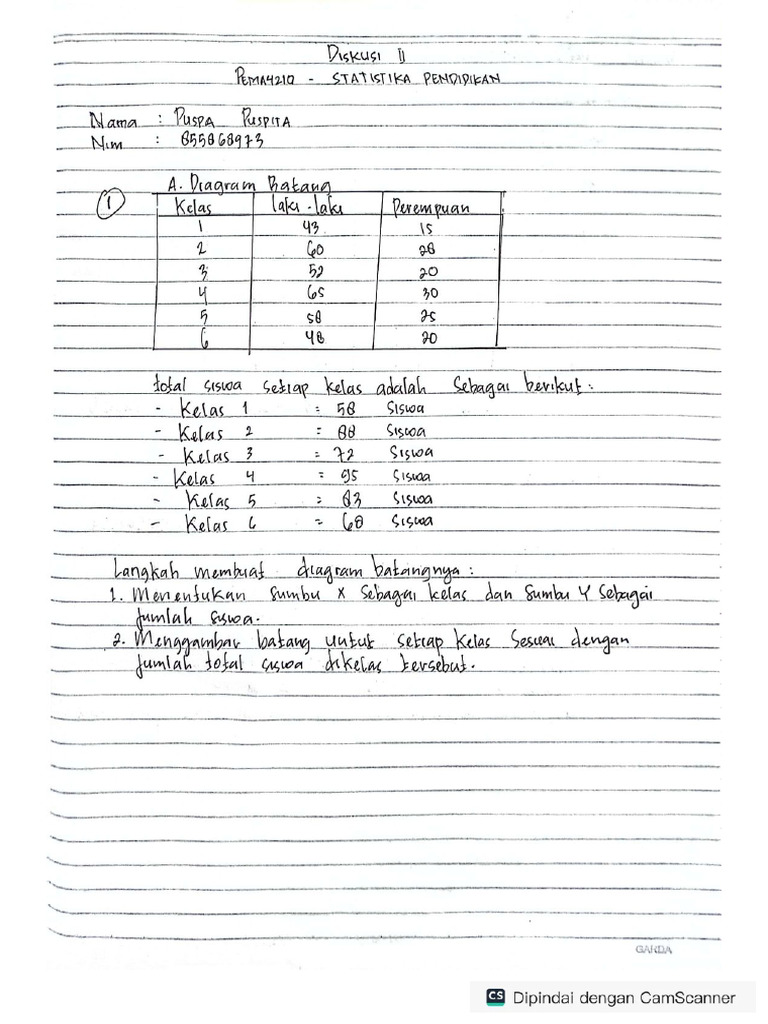 DISKUSI II
PEMA4210 - STATISTIKA PENDIDIKAN
Nama : PUSPA PUSPITA
Nim : 855868973
A. Diagram Batang
1
Kelas laki-laki Perempuan
1 43 15
2 60 28
3 52 20
4 65 30
5 58 25
6 48 20
total siswa setiap kelas adalah sebagai berikut :
- Kelas 1 = 58 Siswa
- Kelas 2 = 88 Siswa
- Kelas 3 = 72 Siswa
- Kelas 4 = 95 Siswa
- Kelas 5 = 83 Siswa
- Kelas 6 = 68 Siswa
Langkah membuat diagram batangnya :
1. Menentukan sumbu X sebagai kelas dan sumbu Y sebagai
jumlah siswa.
2. Menggambar batang untuk setiap kelas sesuai dengan
jumlah total siswa dikelas tersebut.
GARDA
CS Dipindai dengan CamScanner